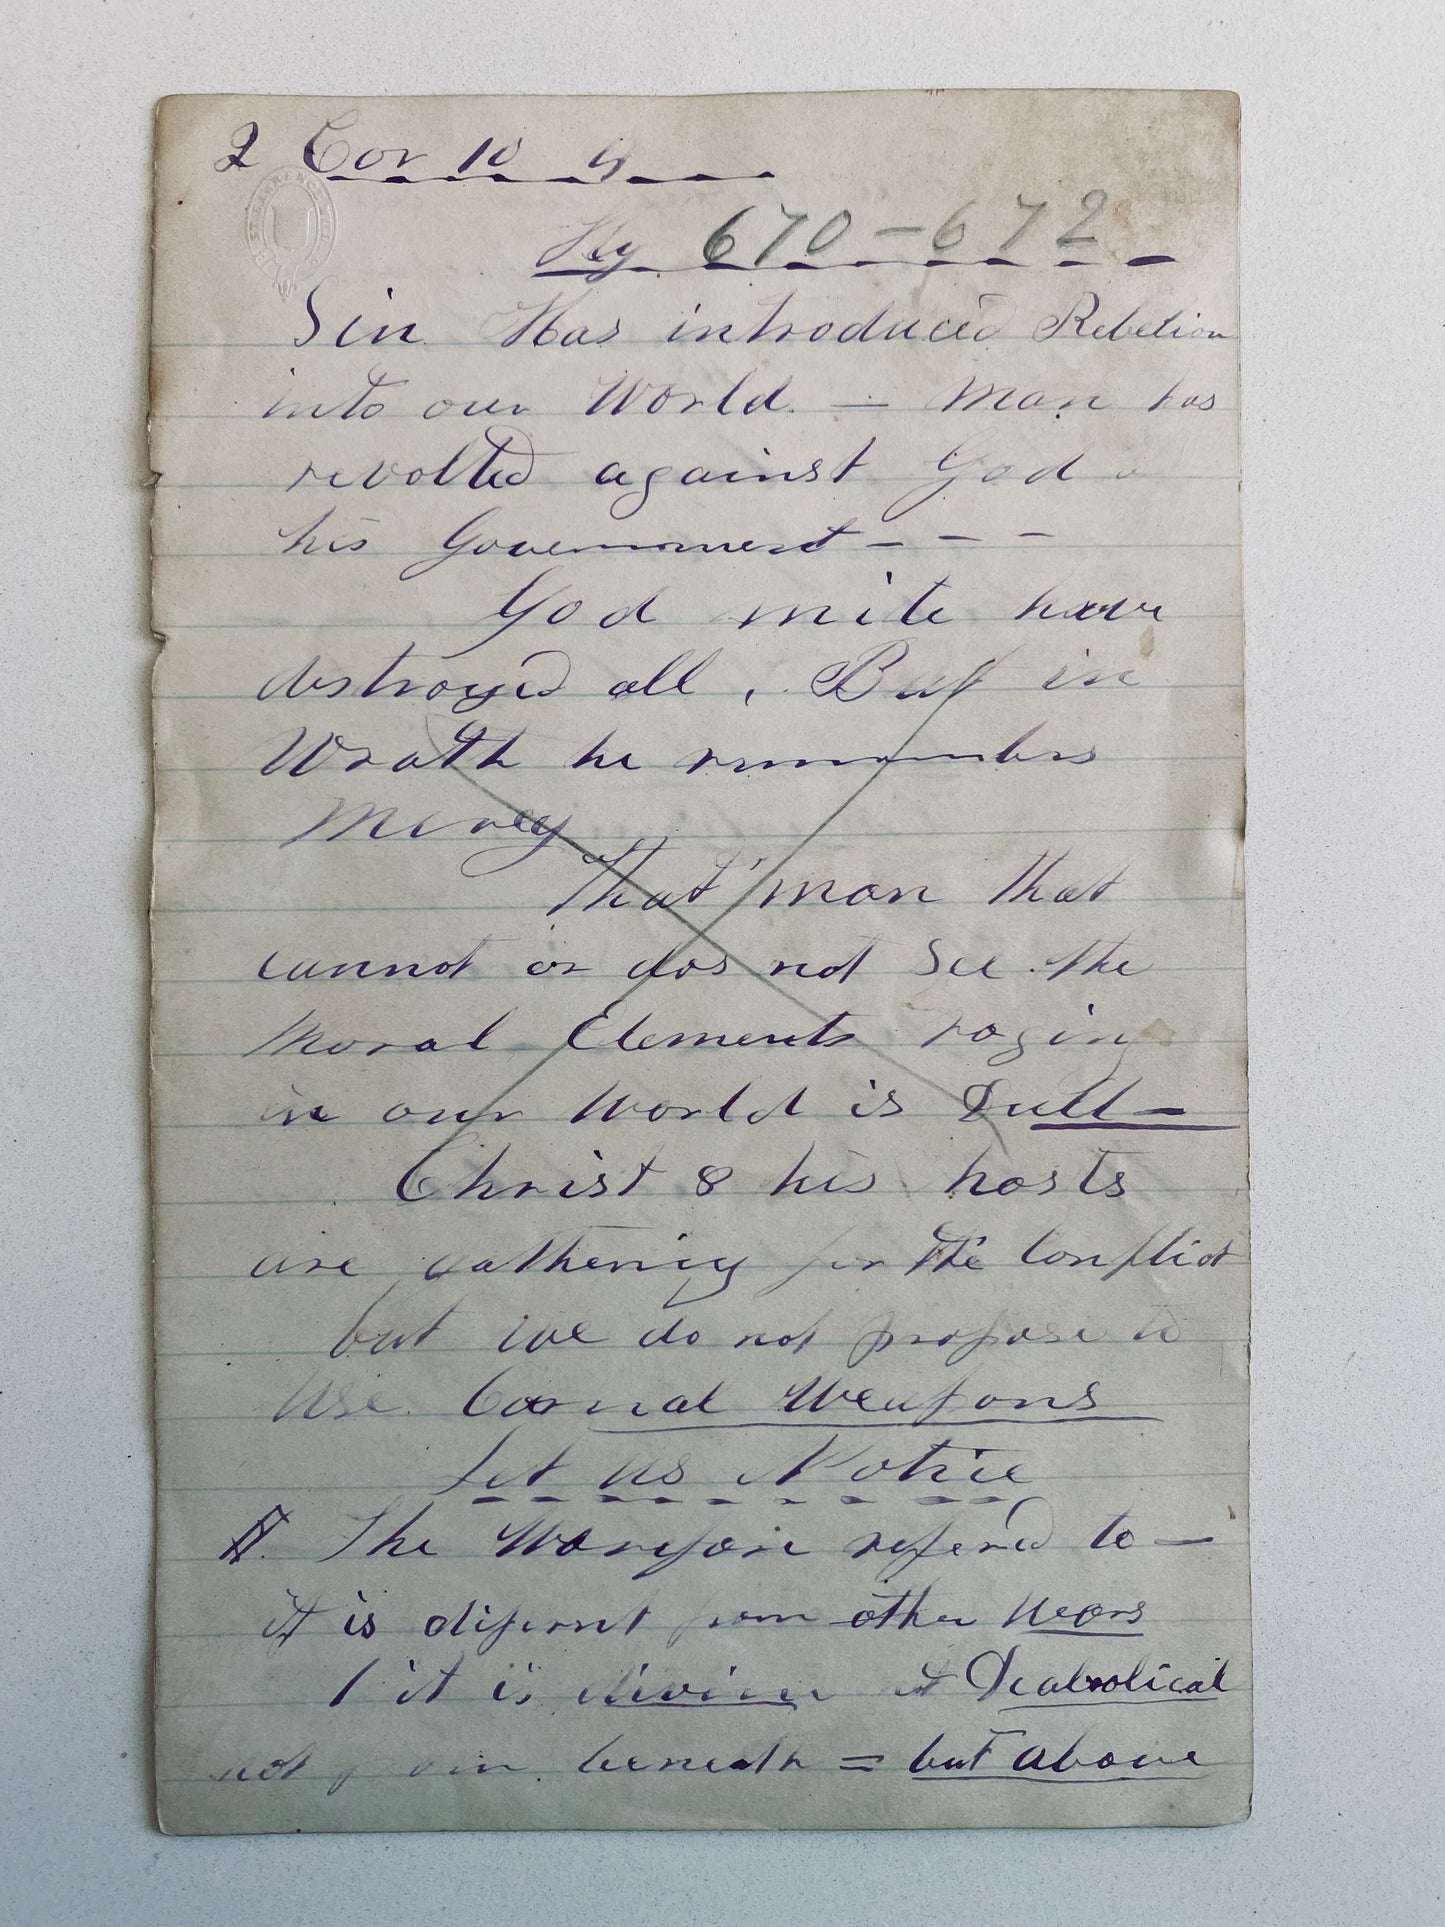 2 Cor 10 4
Hy 670-672
Sin Has introduced Rebelion
into our World. — Man has
revolted against God
his Government - - -
God mite have
destroyed all, But in
Wrath he remembers
Mercy
That man that
cannot or dos not See the
Moral Elements raging
in our World is Dull —
Christ & his hosts
are gathering for the Conflict
but we do not propose to
Use Carnal Weapons
Let us Notice
The Warefare refered to —
it is diferent from other Wears
1 it is divine not Deabolical
not from beneath = but above